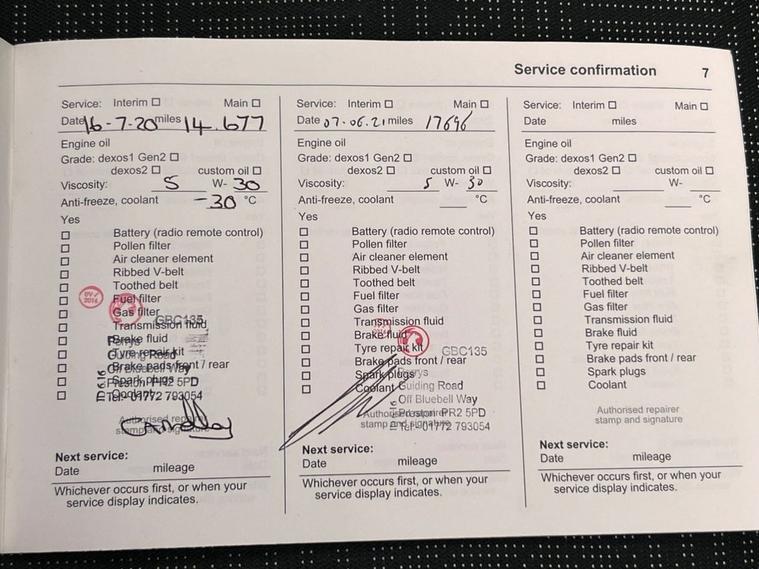 Service confirmation 7
Service: Interim Main
Date 16-7-20 miles 14.677
Engine oil
Grade: dexos1 Gen2
dexos2 custom oil
Viscosity: 5 W- 30
Anti-freeze, coolant -30 °C
Yes
Battery (radio remote control)
Pollen filter
Air cleaner element
Ribbed V-belt
Toothed belt
Fuel filter
Gas filter
GBC135
Transmission fluid
Brake fluid
Perrys
Tyre repair kit
Guiding Road
Brake pads front / rear
Off Bluebell Way
Spark plugs
Preston PR2 5PD
Coolant
Tel: 01772 793054
Authorised repairer
stamp and signature
Next service:
Date mileage
Whichever occurs first, or when your
service display indicates.
Service: Interim Main
Date 07.06.21 miles 17696
Engine oil
Grade: dexos1 Gen2
dexos2 custom oil
Viscosity: 5 W- 30
Anti-freeze, coolant °C
Yes
Battery (radio remote control)
Pollen filter
Air cleaner element
Ribbed V-belt
Toothed belt
Fuel filter
Gas filter
Transmission fluid
Brake fluid
Tyre repair kit
GBC135
Brake pads front / rear
Spark plugs
Perrys
Coolant
Guiding Road
Off Bluebell Way
Authorised repairer
Preston PR2 5PD
stamp and signature
Tel: 01772 793054
Next service:
Date mileage
Whichever occurs first, or when your
service display indicates.
Service: Interim Main
Date miles
Engine oil
Grade: dexos1 Gen2
dexos2 custom oil
Viscosity: W-
Anti-freeze, coolant °C
Yes
Battery (radio remote control)
Pollen filter
Air cleaner element
Ribbed V-belt
Toothed belt
Fuel filter
Gas filter
Transmission fluid
Brake fluid
Tyre repair kit
Brake pads front / rear
Spark plugs
Coolant
Authorised repairer
stamp and signature
Next service:
Date mileage
Whichever occurs first, or when your
service display indicates.